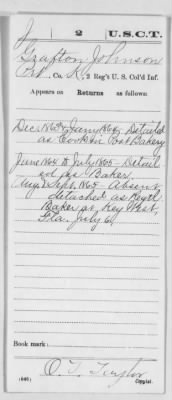 J 2 U.S.C.T.
Grafton Johnson
Pvt., Co. K, 2 Reg't U. S. Col'd Inf.
Appears on Returns as follows:
Dec. 1863 Jany 1864, Detailed
as Cook in Post Bakery
June 1864 to July 1865 - Detail
ed as Baker.
Aug. & Sept. 1865 - Absent
detached as Regtl
Baker at Key West,
Fla. July 6,
Book mark:
(646) Copyist.